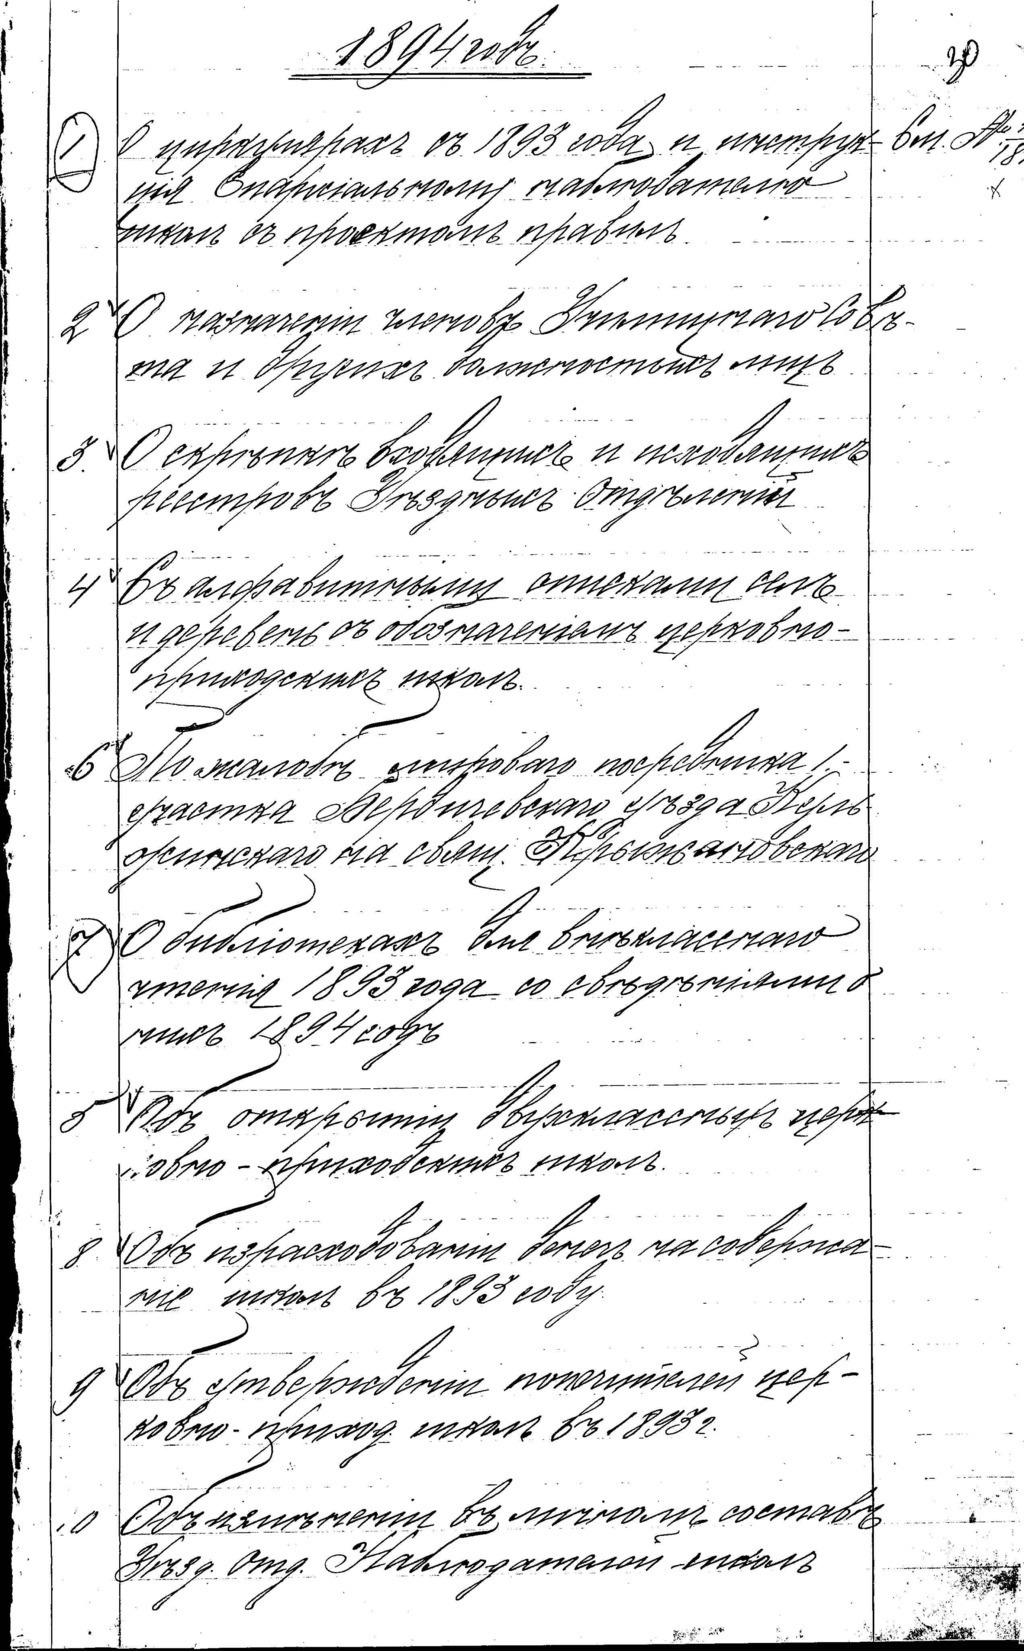 1894 годъ.
20
1 О циркулярахъ съ 1893 года и инструк-
ція Епархіальному наблюдателю
школъ съ проектомъ правилъ.
2 О назначеніи членовъ Училищнаго Совѣ-
та и другихъ должностныхъ лицъ
3. О скрѣпкѣ входящихъ и исходящихъ
реестровъ Уѣздныхъ Отдѣленій
4 Съ алфавитными списками селъ
и деревень съ обозначеніемъ церковно-
приходскихъ школъ.
6 По жалобѣ мироваго посредника 1.-
участка Бердичевскаго уѣзда
на свящ. Крыжановскаго
7 О библіотекахъ для внѣкласснаго
чтенія 1893 года со свѣдѣніями о
нихъ 1894 годъ
5 Объ открытіи двухклассныхъ церк
овно-приходскихъ школъ.
8 Объ израсходованіи денегъ на содержа-
ніе школъ въ 1893 году.
9 Объ утвержденіи попечителей цер-
ковно-приход. школъ въ 1893 г.
10 Объ измѣненіи въ личномъ составѣ
Уѣзд. Отд. Наблюдателей школъ